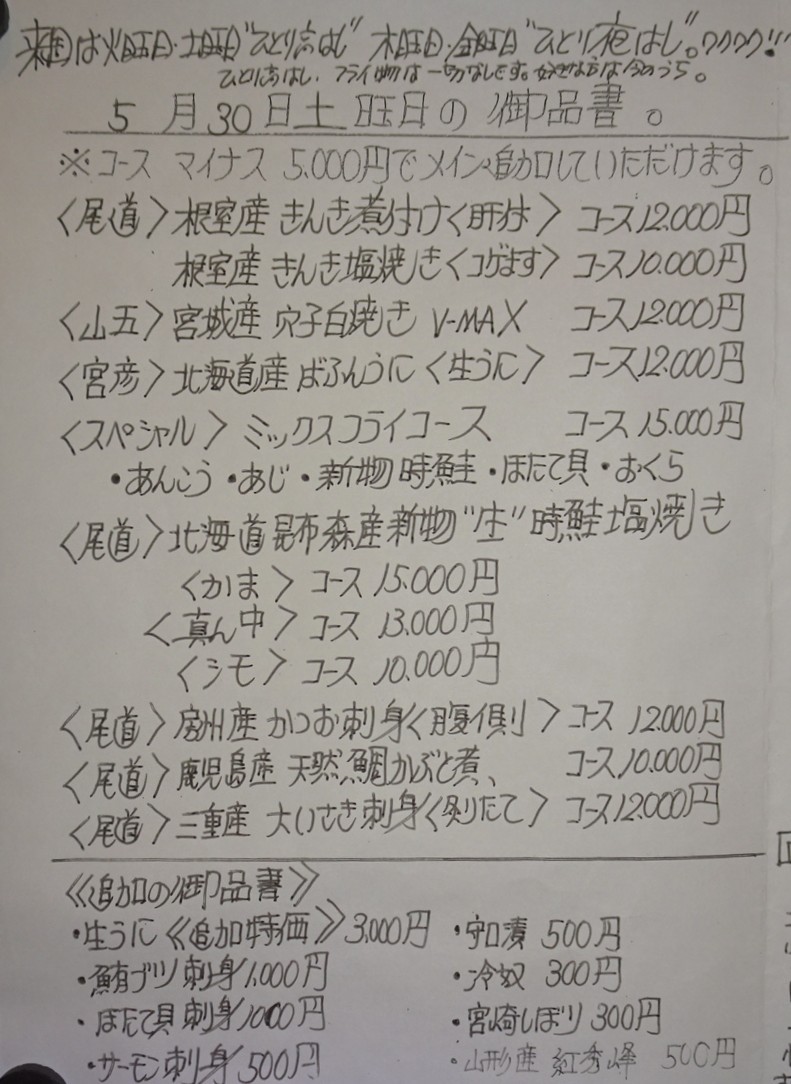 来週は火曜日・土曜日"ひとり昼はし" 木曜日・金曜日"ひとり夜はし"。ワクワク!!
ひとり昼はし、フライ物は一切なしです。好きな方は今のうち。
5月30日土曜日の御品書。
※コース マイナス 5.000円でメイン追加していただけます。
〈尾道〉根室産 きんき煮付け〈肝付〉 コース12.000円
根室産 きんき塩焼き〈コゲます〉 コース10.000円
〈山五〉宮城産 穴子白焼き V-MAX コース12.000円
〈宮彦〉北海道産 ばふんうに〈生うに〉 コース12.000円
〈スペシャル〉ミックスフライコース コース15.000円
・あんこう・あじ・新物時鮭・ほたて貝・おくら
〈尾道〉北海道昆布森産新物"生"時鮭塩焼き
〈かま〉コース15.000円
〈真ん中〉コース13.000円
〈シモ〉コース10.000円
〈尾道〉房州産 かつお刺身〈腹側〉コース12.000円
〈尾道〉鹿児島産 天然鯛かぶと煮、 コース10.000円
〈尾道〉三重産 大いさき刺身〈炙りたて〉コース12.000円
《追加の御品書》
・生うに《追加特価》3,000円 ・守口漬 500円
・鮪ブツ刺身1.000円 ・冷奴 300円
・ほたて貝刺身1000円 ・宮崎しぼり 300円
・サーモン刺身500円 ・山形産 紅秀峰 500円